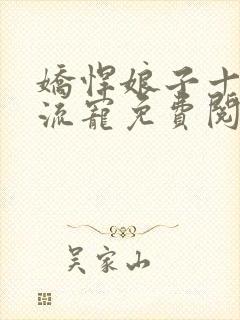 嬌悍娘子十
流寵免費閱
吴家山